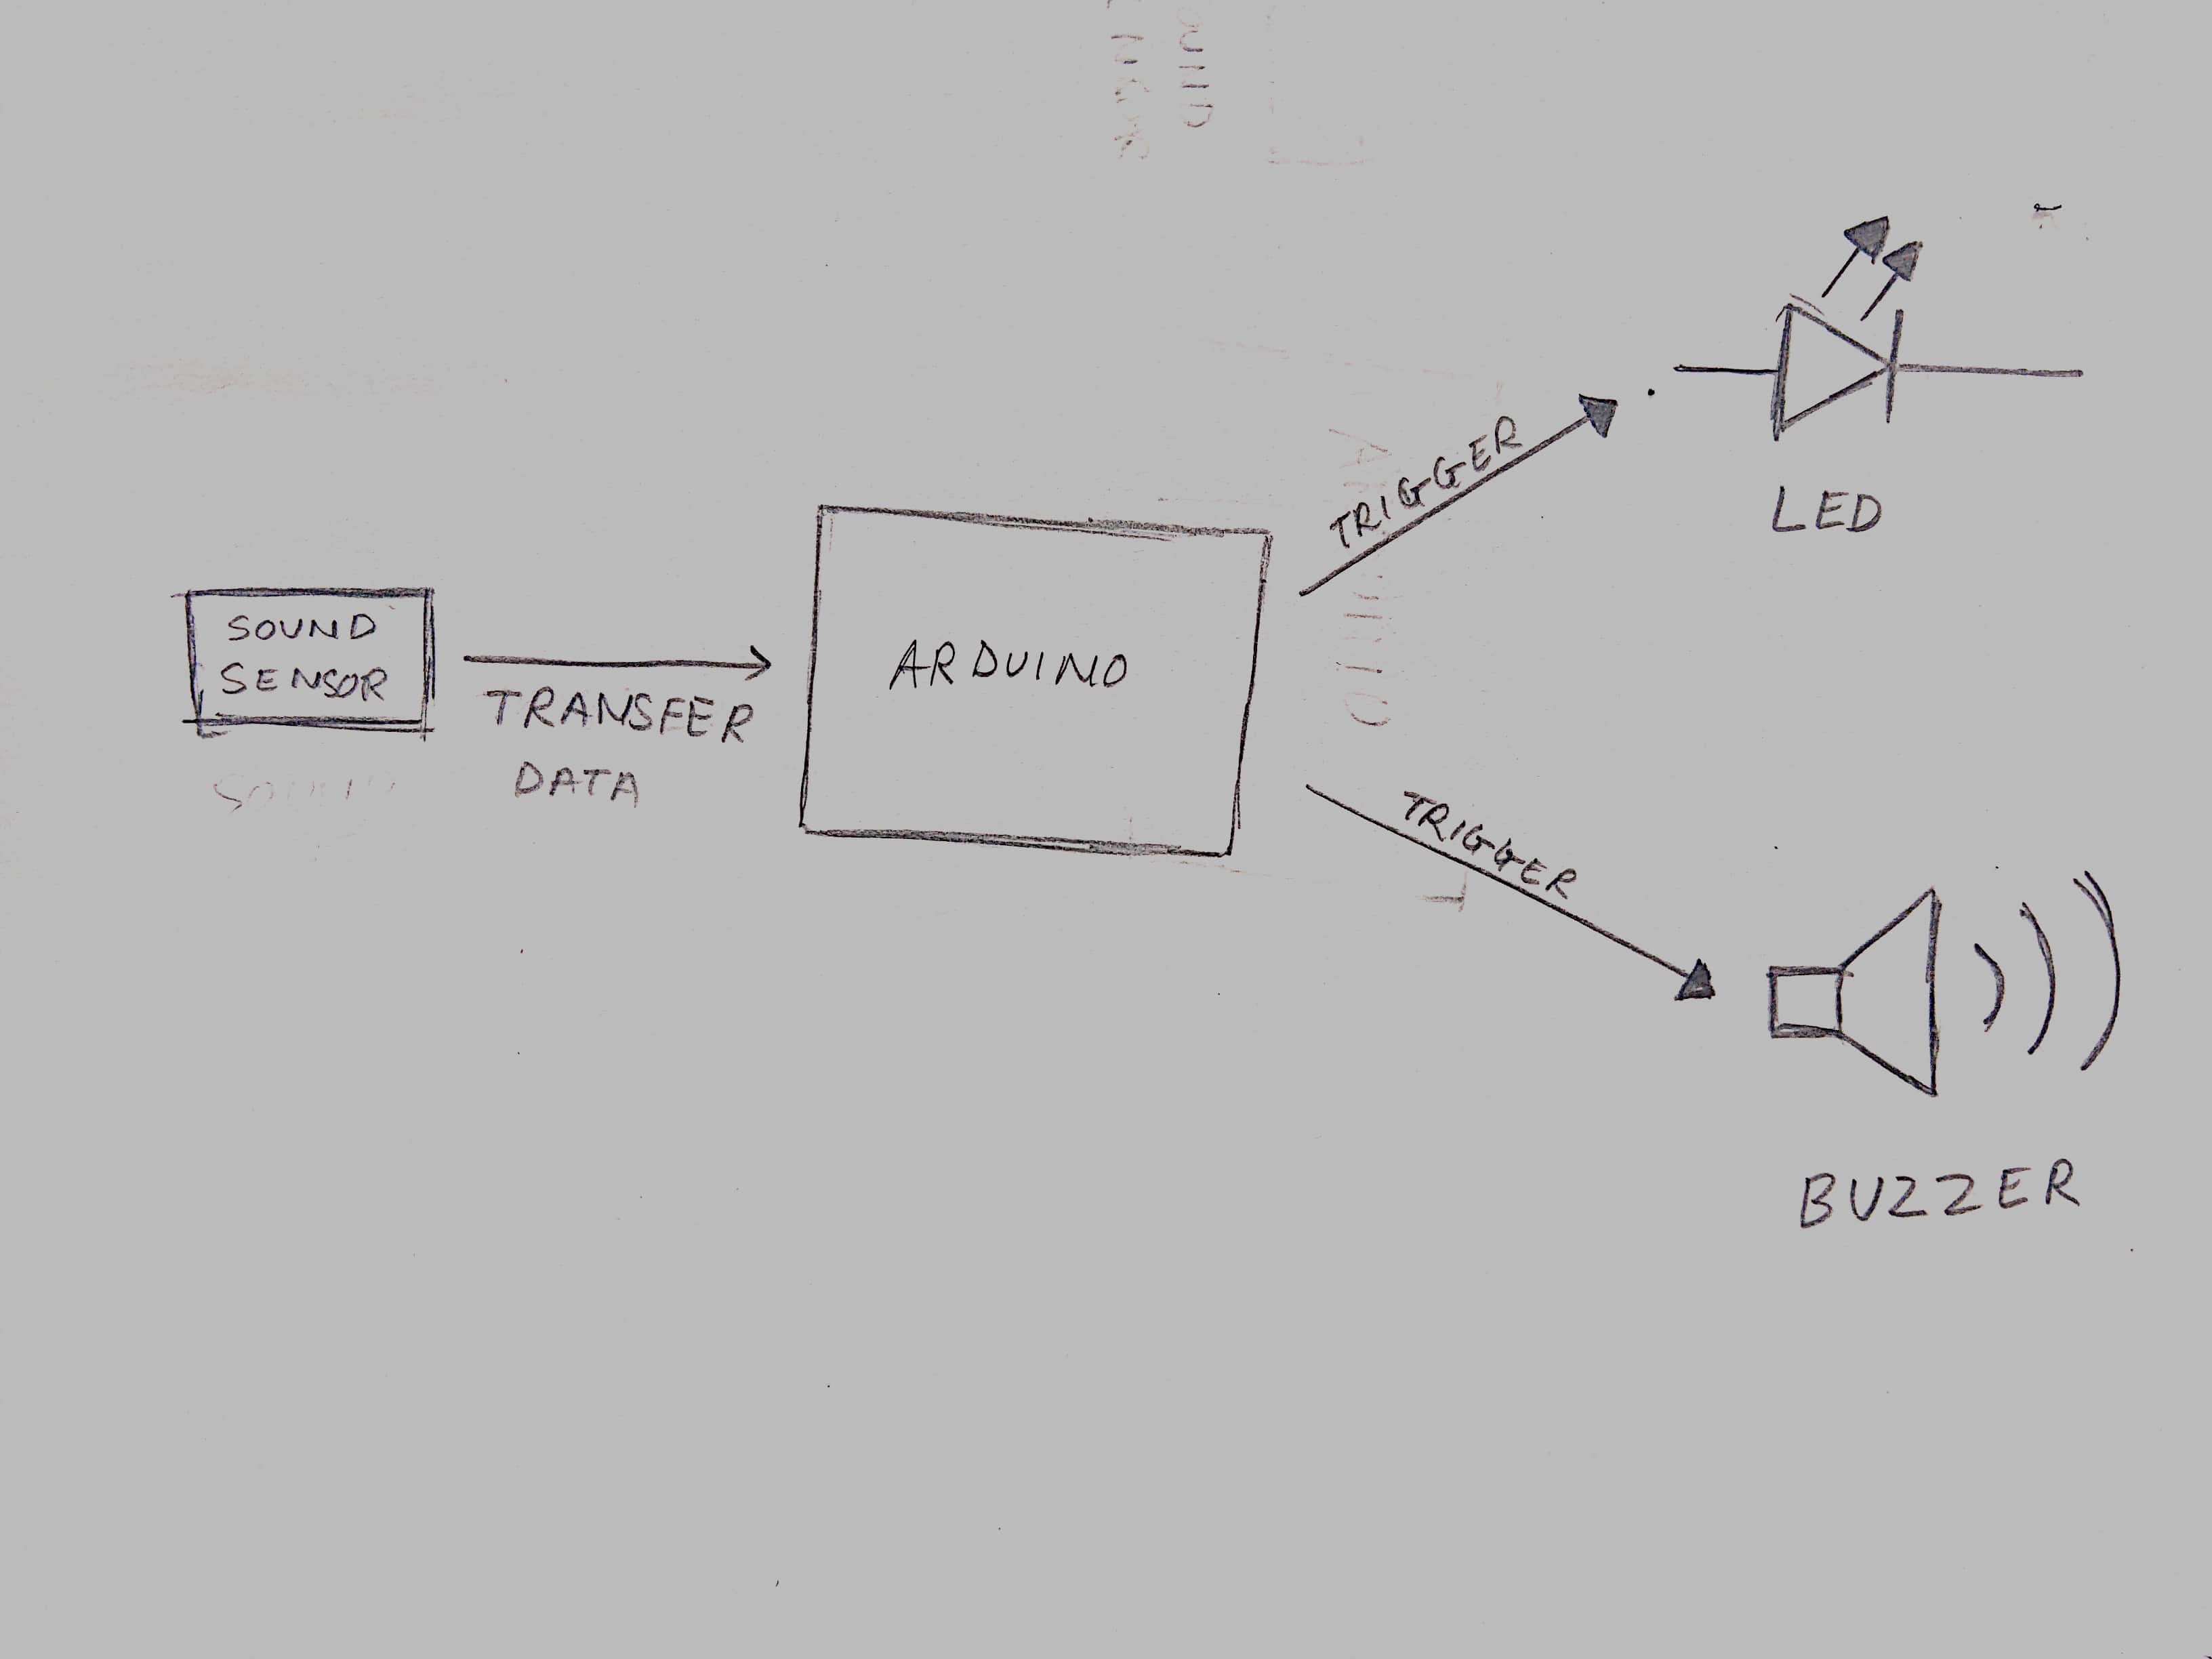 SOUND
SENSOR
TRANSFER
DATA
ARDUINO
TRIGGER
LED
TRIGGER
BUZZER